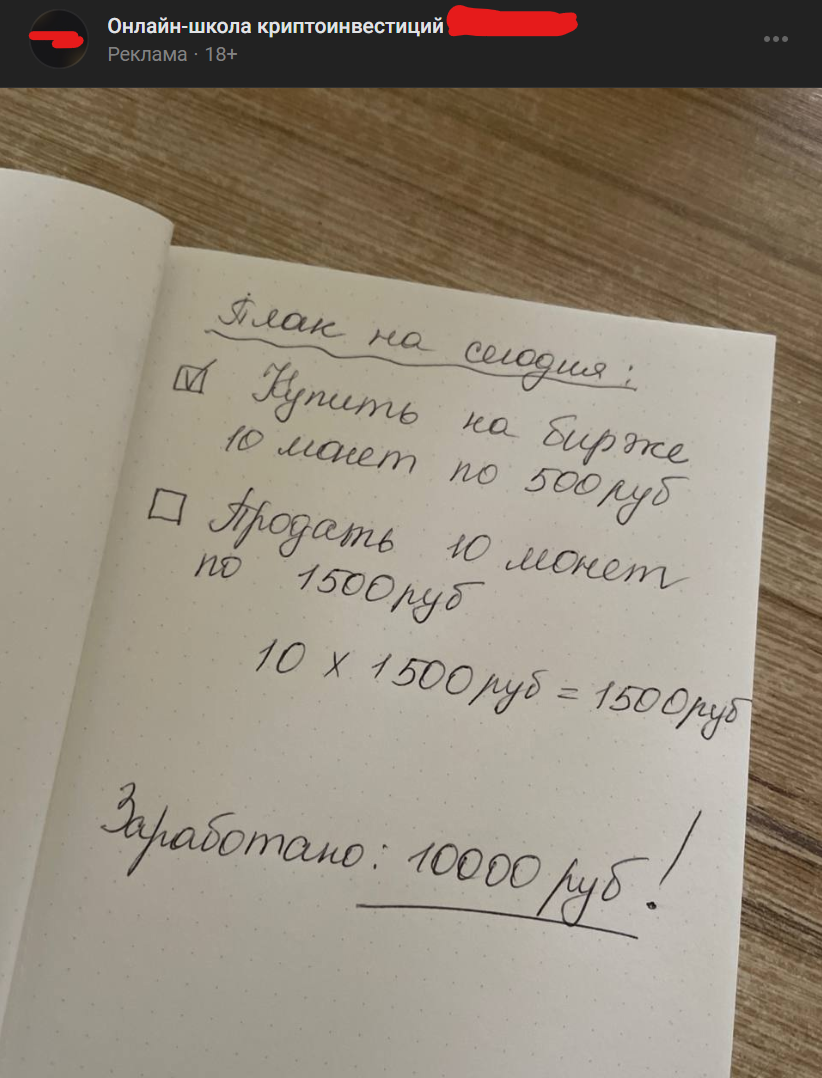 Онлайн-школа криптоинвестиций
Реклама · 18+
План на сегодня:
Купить на бирже
10 монет по 500 руб
Продать 10 монет
по 1500 руб
10 х 1500 руб = 1500 руб
Заработано: 10000 руб!